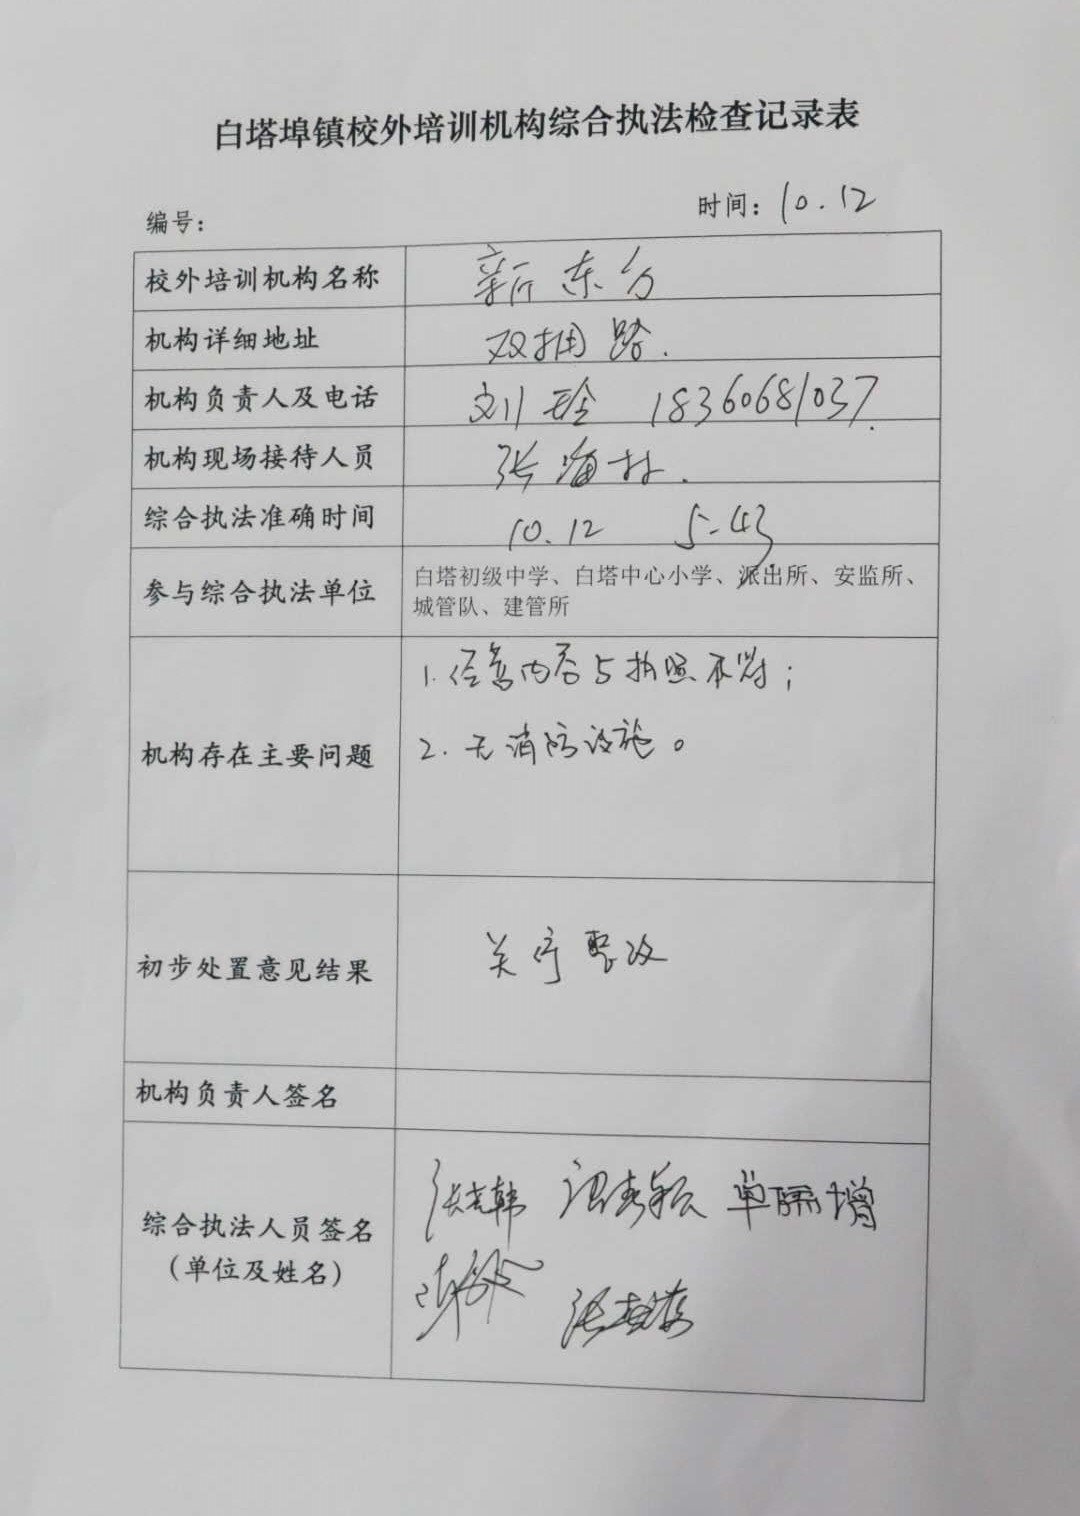 白塔埠镇校外培训机构综合执法检查记录表
编号：
时间：10.12
校外培训机构名称 新东方
机构详细地址 双拥路.
机构负责人及电话 刘玲 18360681037.
机构现场接待人员 张海林.
综合执法准确时间 10.12 5-43
参与综合执法单位
白塔初级中学、白塔中心小学、派出所、安监所、
城管队、建管所
1.经营内容与执照不对；
机构存在主要问题
2.无消防设施。
初步处置意见结果 关停整改
机构负责人签名
综合执法人员签名
（单位及姓名）